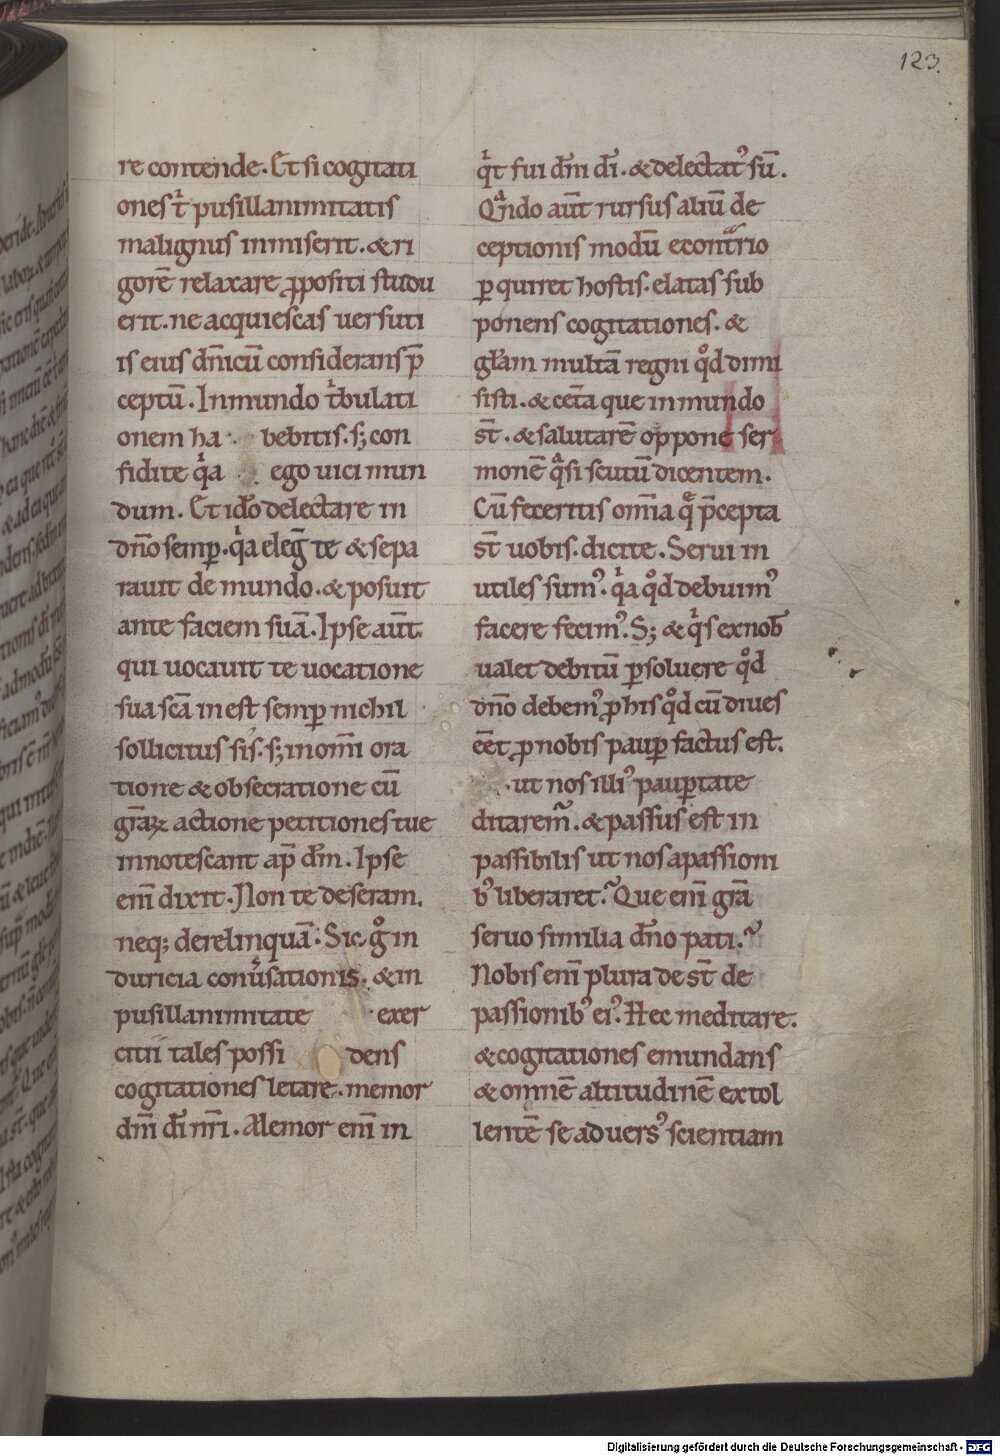 123.
re contende. Et si cogitati
ones t̾ pusillanimitatis
malignus inmiserit. & ri
gorē relaxare ꝓpositi studu
erit. ne acquiescas uersuti
is eius dn̄icū considerans p̄
ceptū. In mundo tͥbulati
onem ha bebitis. s; con
fidite qͥa ego uici mun
dum. Et ido̅ delectare in
dn̄o semꝑ. qͥa eleg̅ te & sepa
rauit de mundo. & posuit
ante faciem suā. Ipse aūt
qui uocauit te uocatione
sua sc̄a inest semꝑ nichil
sollicitus sis. s; in om̄i ora
tione & obsecratione cū
gr̄aꝝ actione petitiones tue
innotescant ap̄ dm̄. Ipse
eni̅ dixit. Non te deseram.
neq; derelinquā. Sic gͦ in
duricia conu̾sationis. & in
pusillanimitate exer
citii tales possi dens
cogitationes letare. memor
dn̄i di̅ nr̄i. Memor eni̅ in
qͥt fui dn̄i di̅. & delectatꝰ sū.
Qͣndo aūt rursus aliū de
ceptionis modū econtͣrio
ꝑquiret hostis. elatas sub
ponens cogitationes. &
gl̄am multā regni qͦd dimi
sisti. & cet̄a que in mundo
st̄. & salutarē oppone ser
monē qͣsi scutū dicentem.
Cū feceritis om̄ia q̄ p̄cepta
st̄ uobis. dicite. Serui in
utiles sumꝰ. qͥa qͦd debuimꝰ
facere fecimꝰ. S; & qͥs ex nob̄
ualet debitū ꝑsoluere qͦd
dn̄o debemꝰ ꝓ his qͦd cū diues
eēt ꝓ nobis pauꝑ factus est.
ut nos illiꝰ pauꝑtate
ditarem̃. & passus est in
passibilis ut nos a passioni
bꝰ liberaret. Que eni̅ gr̄a
seruo similia dn̄o pati.
Nobis eni̅ plura de st̄ de
passionibꝰ eiꝰ. Hec meditare.
& cogitationes emundans
& omnē altitudinē extol
lentē se aduersꝰ scientiam
Digitalisierung gefördert durch die Deutsche Forschungsgemeinschaft - DFG